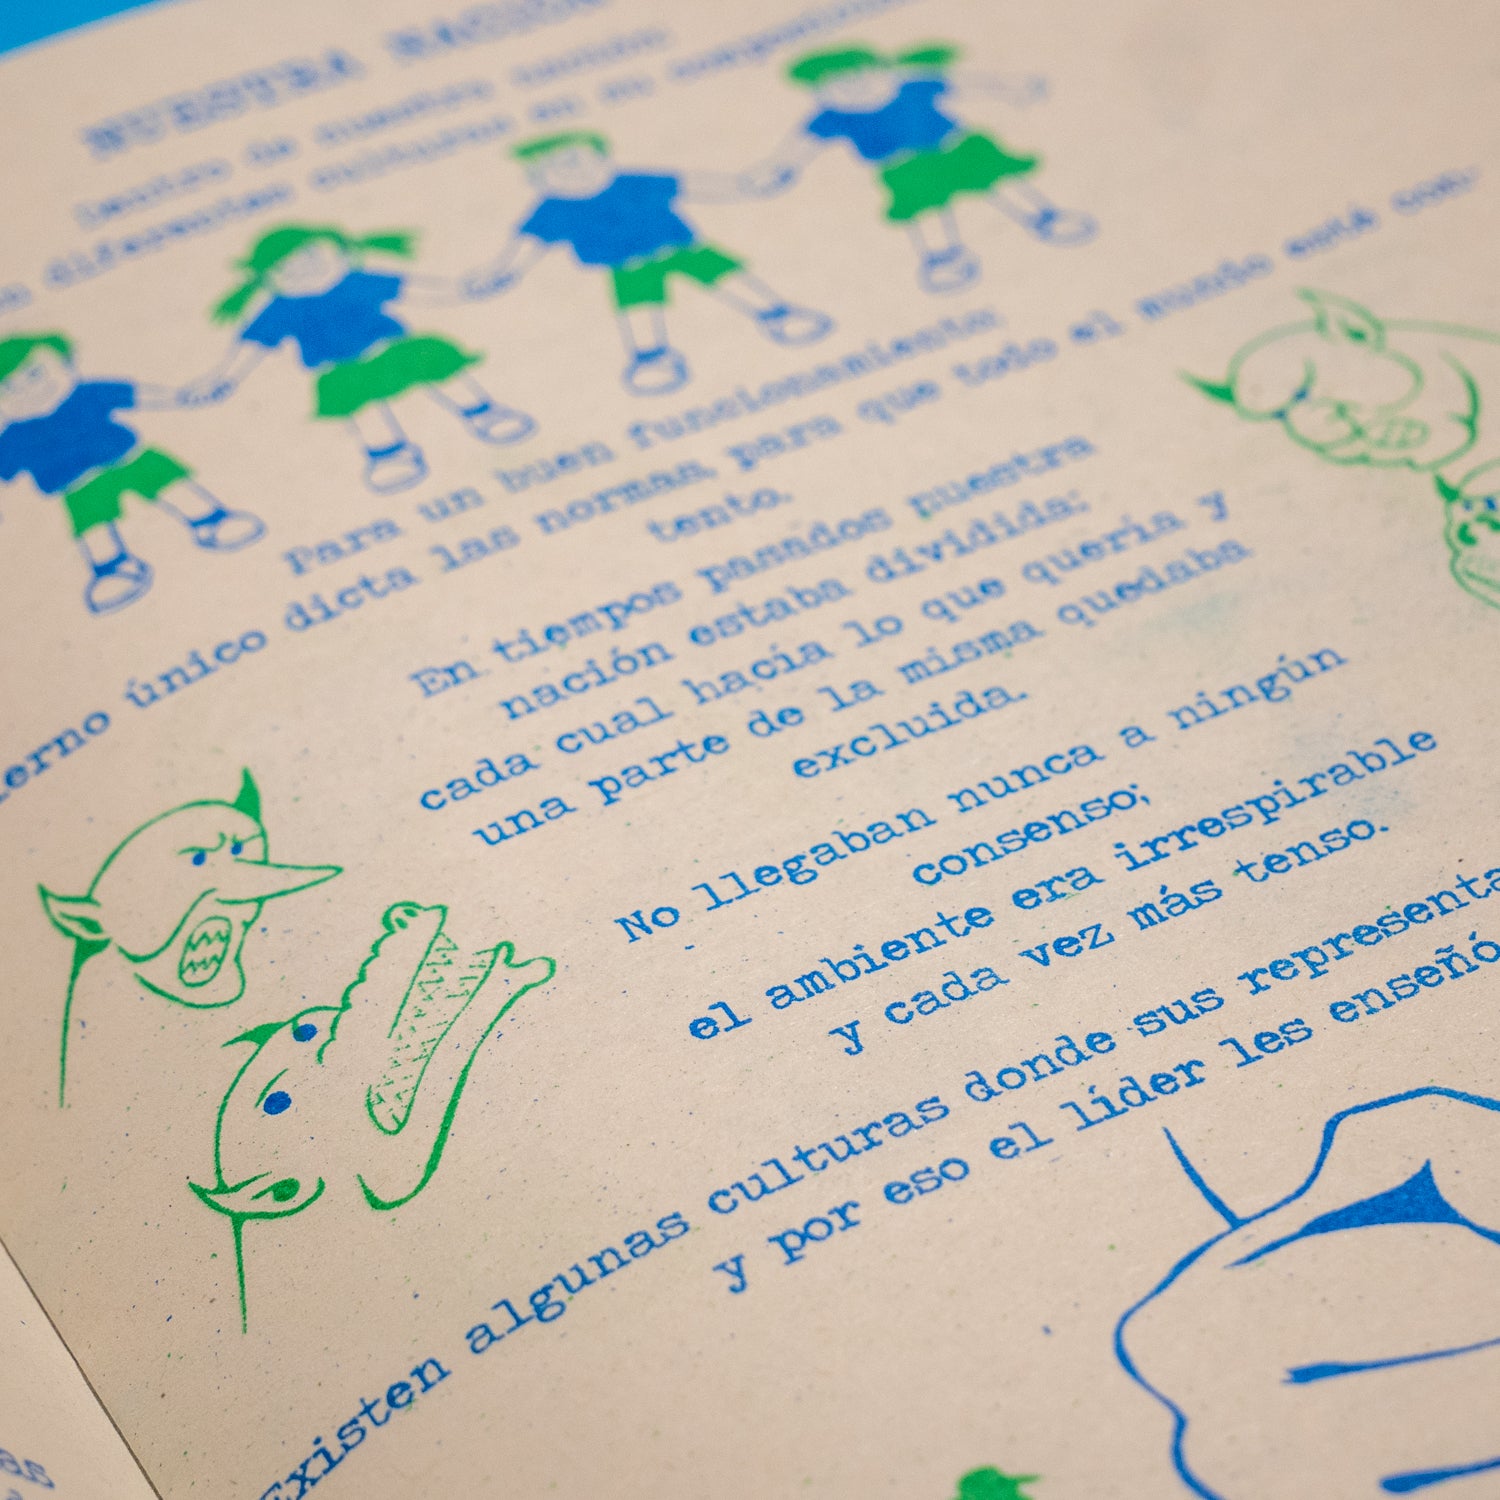 NUESTRA NACIÓN
Dentro de nuestra nación
diferentes culturas en su
Para un buen funcionamiento
ierno único dicta las normas, para que todo el mundo esté con-
tento.
En tiempos pasados nuestra
nación estaba dividida:
cada cual hacía lo que quería y
una parte de la misma quedaba
excluida.
No llegaban nunca a ningún
consenso;
el ambiente era irrespirable
y cada vez más tenso.
Existen algunas culturas donde sus representa
y por eso el líder les enseñó
as